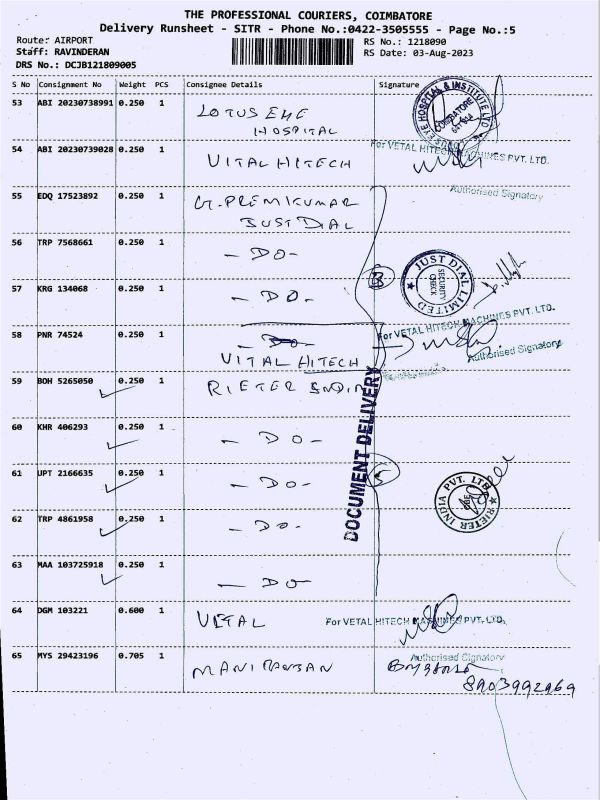 THE PROFESSIONAL COURIERS, COIMBATORE
Delivery Runsheet - SITR - Phone No.:0422-3505555 - Page No.:5
Route: AIRPORT
RS No.: 1218090
Staff: RAVINDERAN
RS Date: 03-Aug-2023
DRS No.: DCJB121809005
S No Consignment No Weight PCS Consignee Details Signature
53 ABI 20230738991 0.250 1 LOTUS EYE
HOSPITAL
EYE HOSPITAL & INSTITUTE LTD
COIMBATORE
54 ABI 20230739028 0.250 1 VITAL HITECH
For VETAL HITECH MACHINES PVT. LTD.
Authorised Signatory
55 EDQ 17523892 0.250 1 G. PREMKUMAR
JUST DIAL
56 TRP 7568661 0.250 1 - DO -
57 KRG 134068 0.250 1 - DO -
3
JUST DIAL LIMITED
SECURITY CHECK
58 PNR 74524 0.250 1 - DO -
VITAL HITECH
For VETAL HITECH MACHINES PVT. LTD.
Authorised Signatory
59 BOH 5265050 0.250 1 RIETER INDIA
60 KHR 406293 0.250 1 - DO -
61 UPT 2166635 0.250 1 - DO -
5
DOCUMENT DELIVERY
RIETER INDIA PVT. LTD.
62 TRP 4861958 0.250 1 - DO -
63 MAA 103725918 0.250 1 - DO
64 DGM 103221 0.600 1 VETAL
For VETAL HITECH MACHINES PVT. LTD.
Authorised Signatory
65 MYS 29423196 0.705 1 MANIRANJAN
8903992969